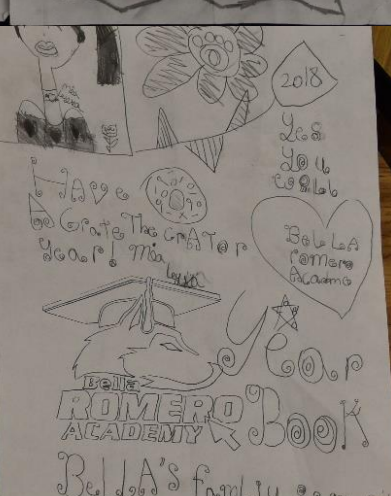 2018
Yes
You
Will
Have
A Grate The crATor
year! Mia
BellA
romero
Academe
Year
Bella
ROMERO
ACADEMY
Book
BellA's family